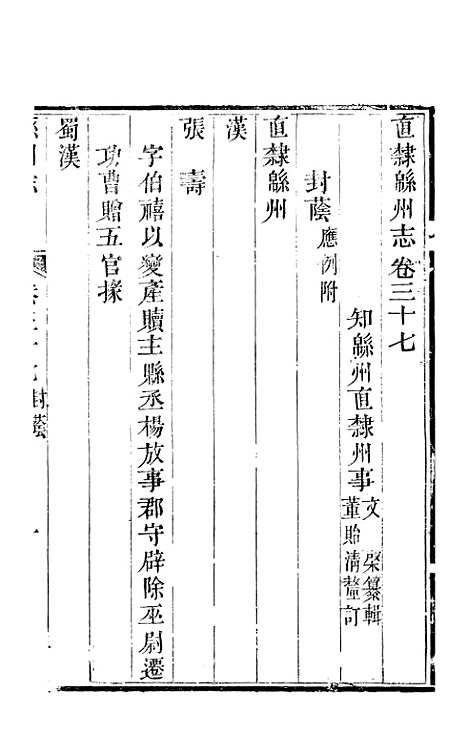 直隸緜州志卷三十七
知緜州直隸州事文棨纂輯
董貽清釐訂
封蔭應例附
直隸緜州
漢
張壽
字伯禧以變產贖主縣丞楊放事郡守辟除巫尉遷
功曹贈五官掾
蜀漢
卷三十七封蔭
一